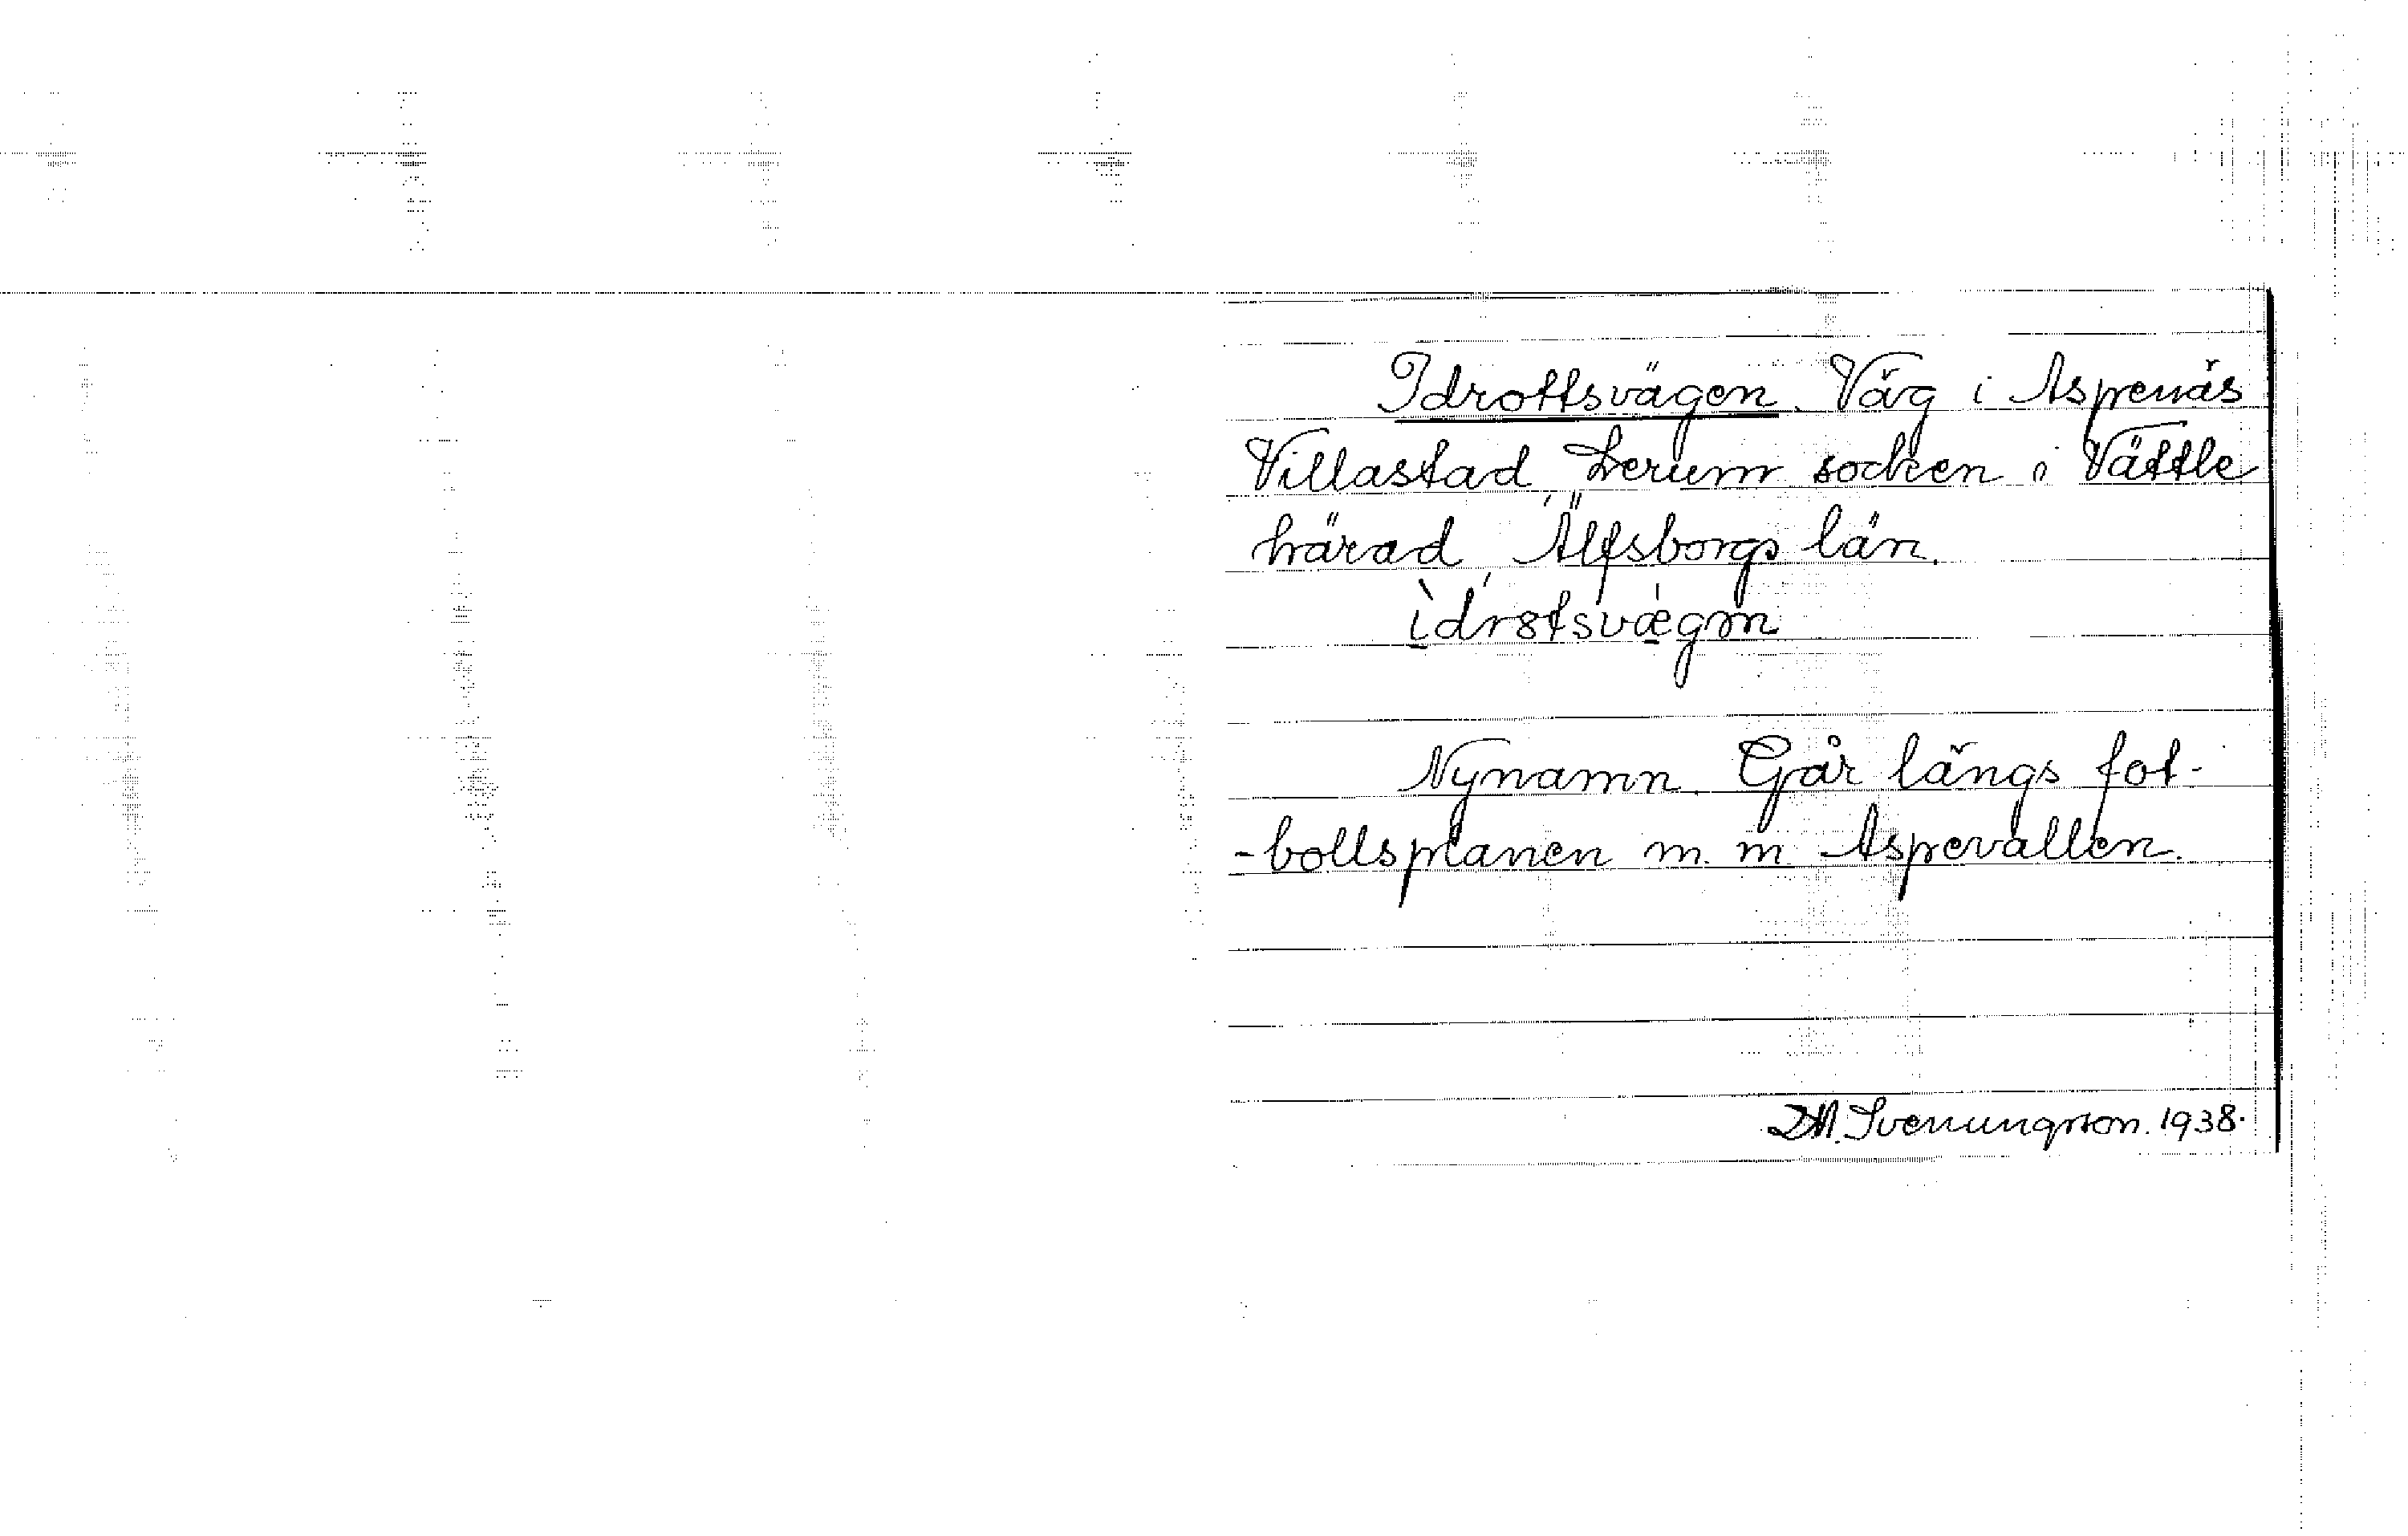 Idrottsvägen. Väg i Aspenäs
Villastad, Lerum socken i Vättle
härad, Älfsborgs län.
Nynamn. Går längs fot-
-bollsplanen m. m. Aspevallen.
Svenungsson. 1938.